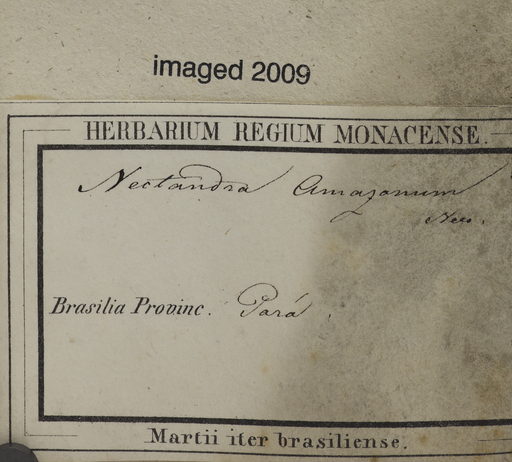 imaged 2009
HERBARIUM REGIUM MONACENSE.
Nectandra Amazonum
Nees.
Brasilia Provinc. Pará.
Martii iter brasiliense.